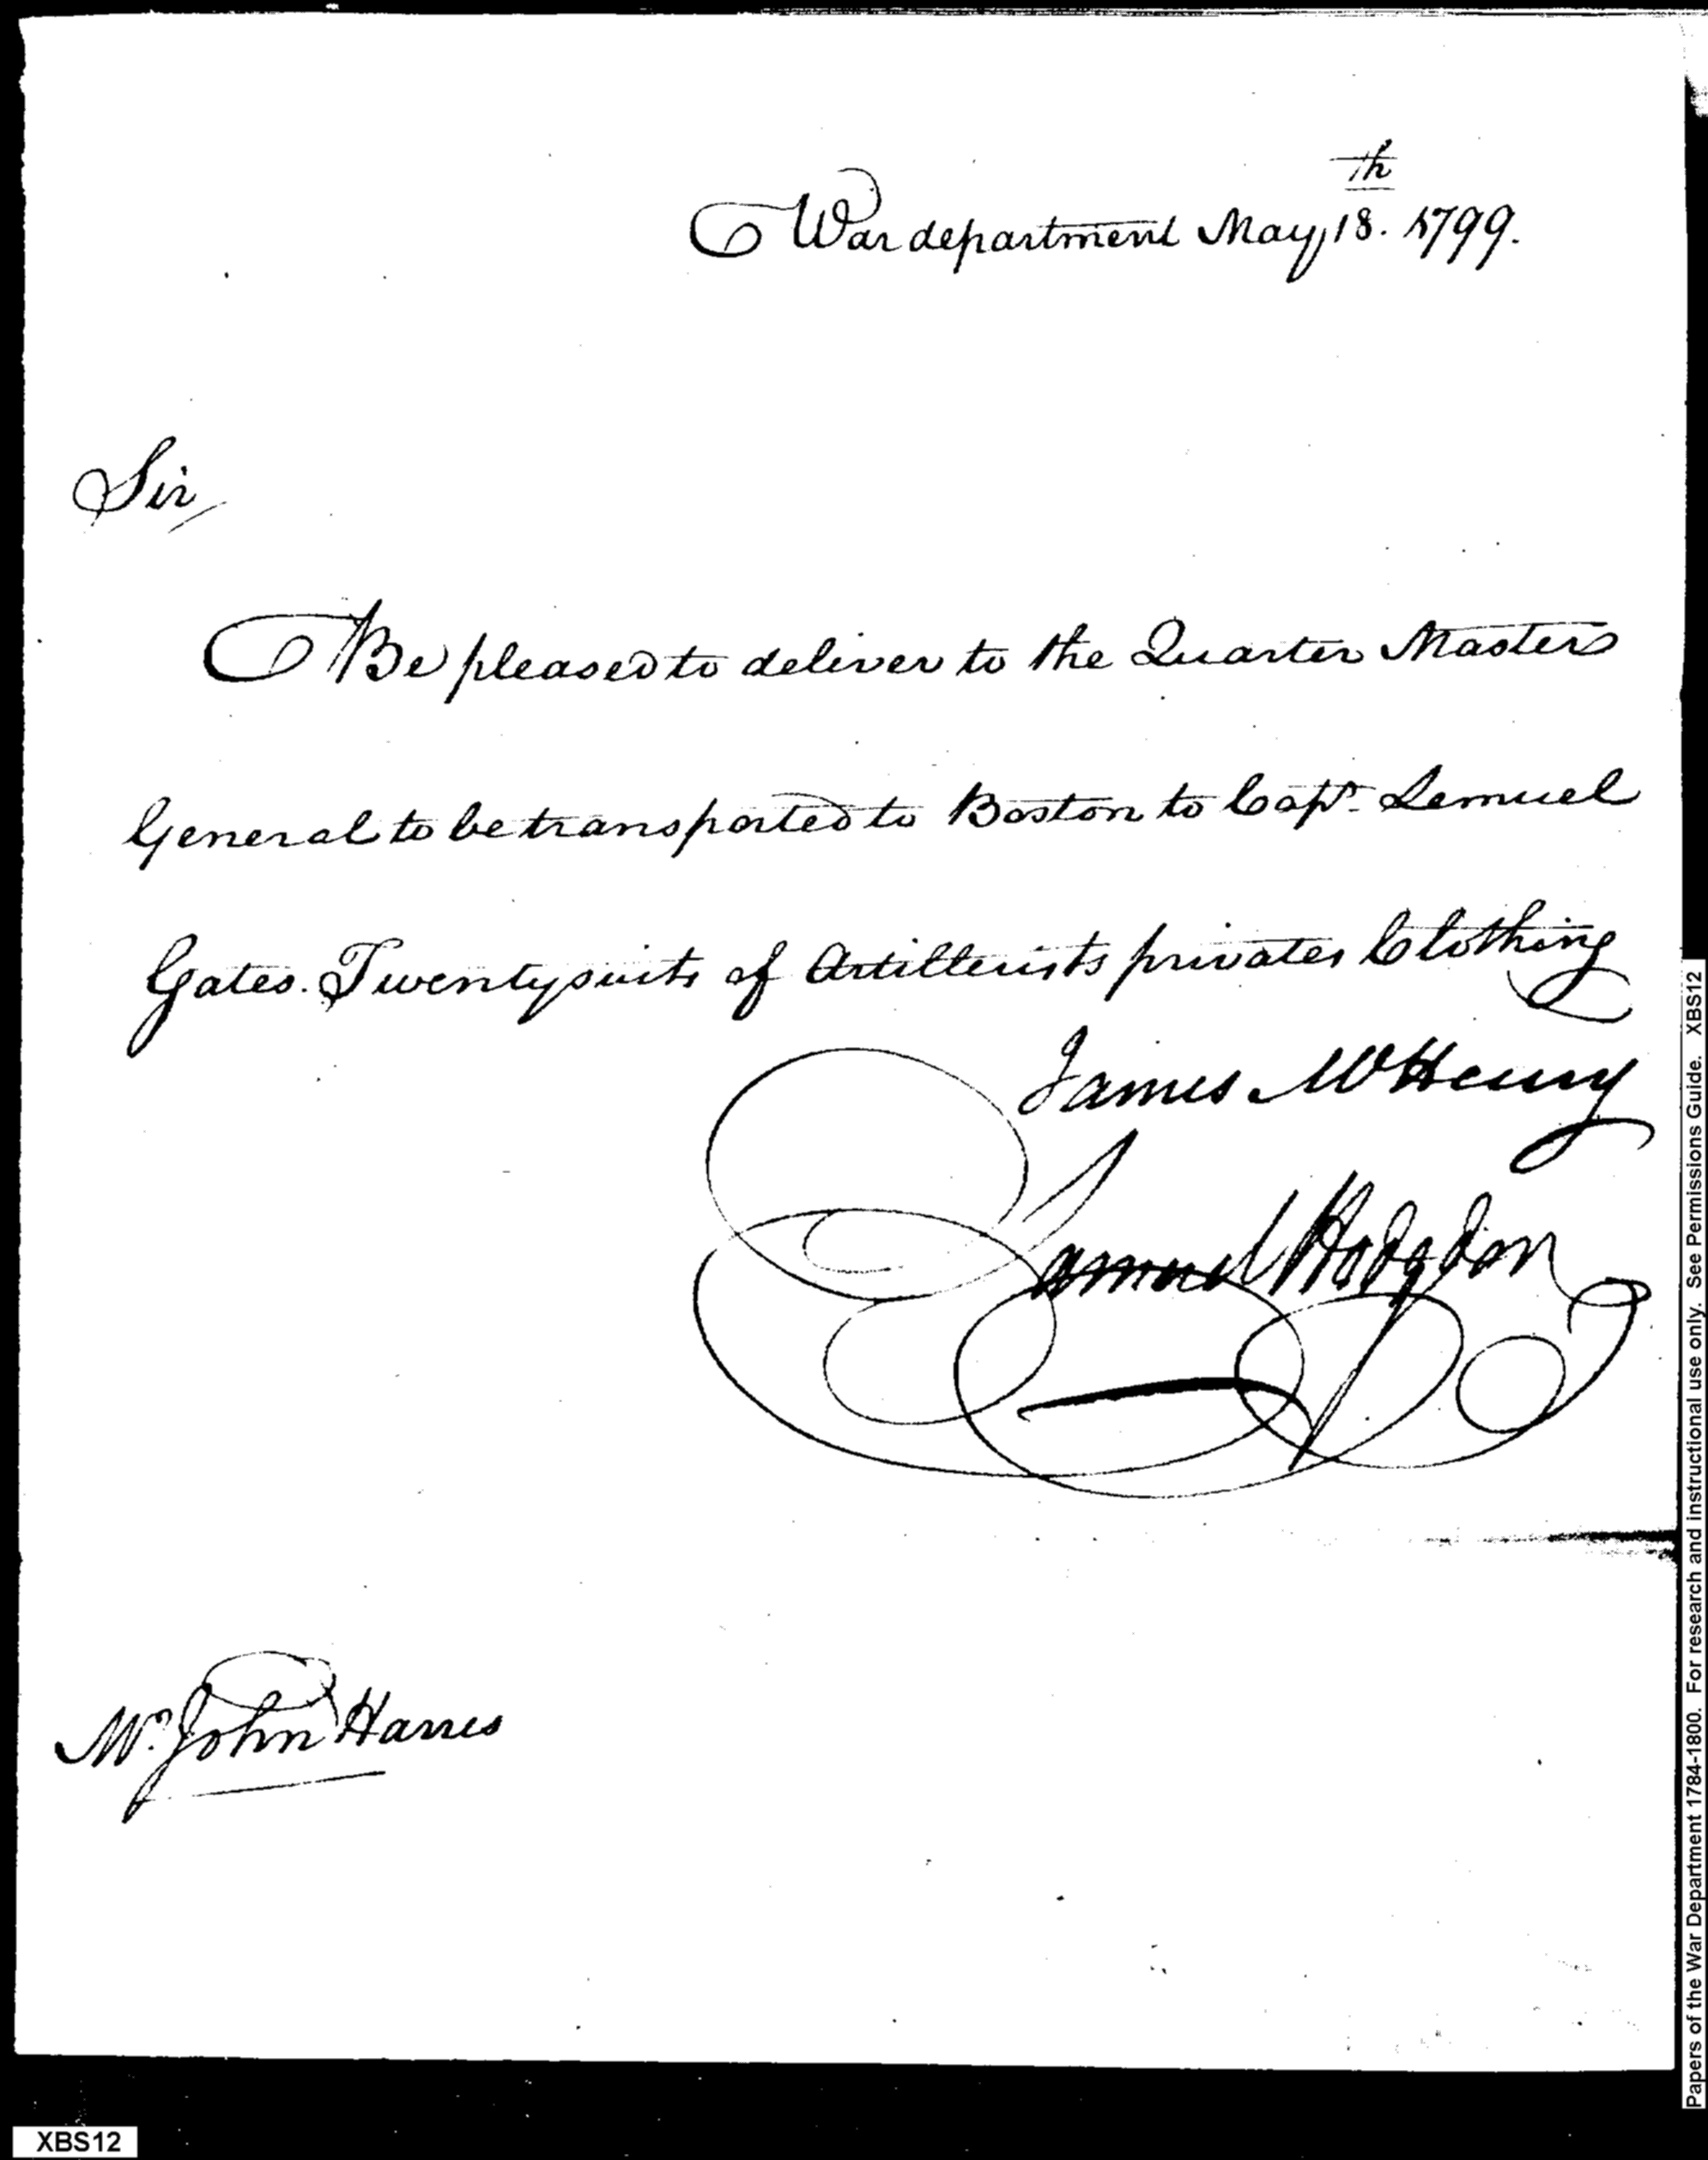 War department May 18.th 1799.
Sir,
Be pleased to deliver to the Quarter Masters
General to be transported to Boston to Capt. Lemuel
Gates. Twenty suits of Artillerists privates Clothing
James McHenry
Samuel Hodgdon
Mr. John Harris
XBS12
Papers of the War Department 1784-1800. For research and instructional use only. See Permissions Guide. XBS12